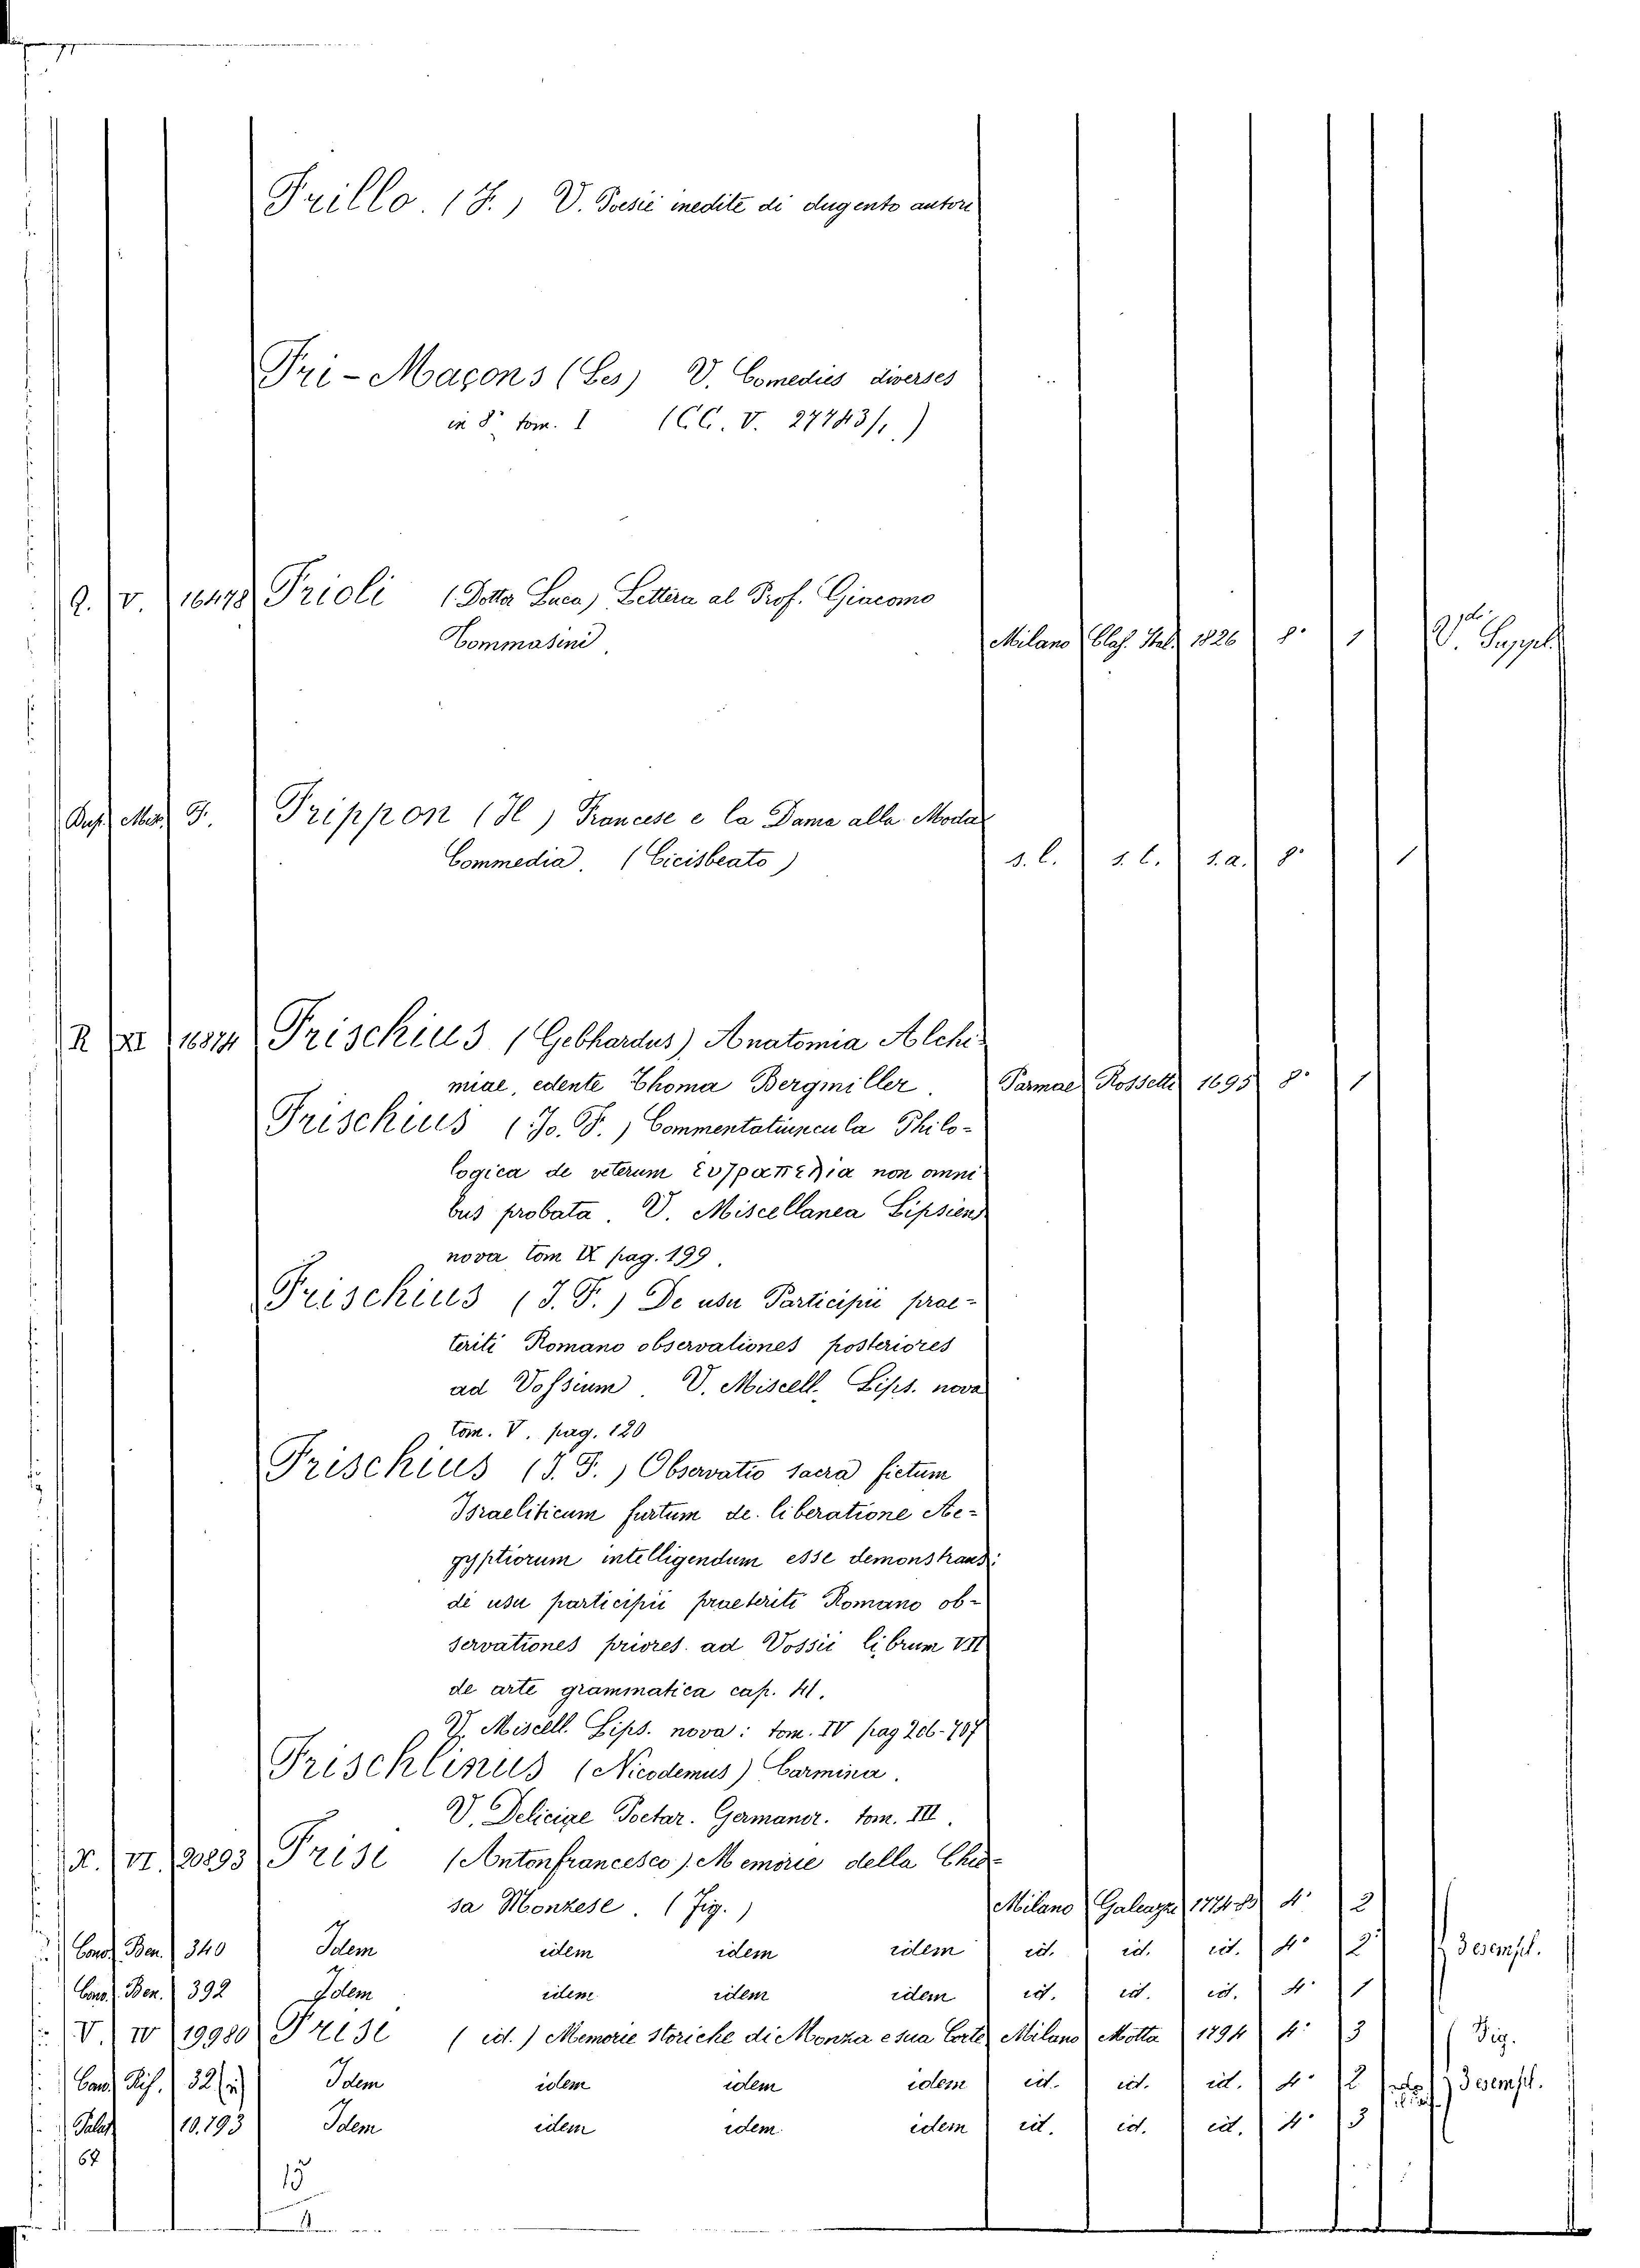 Frillo. (F.) V. Poesie inedite di dugento autori
Fri-Maçons (Les) V. Comedies diverses
in 8° tom. I (CC. V. 27743/1.)
Q. V. 16478 Frioli (Dottor Luca) Lettera al Prof. Giacomo
Tommasini. Milano Claſ. Ital. 1826 8° 1 V. Suppl.
F. Frippon (Il) Francese e la Dama alla Moda
Commedia. (Cicisbeato) s. l. s. l. s. a. 8° 1
R XI 16874 Frischius (Gebhardus) Anatomia Alchi-
miae, edente Thoma Bergmiller. Parmae Rossetti 1695 8° 1
Frischius (Jo. F.) Commentatiuncula Philo-
logica de veterum non omni
bus probata. V. Miscellanea Lipsiens
nova tom IX pag. 199.
Frischius (J. F.) De usu Participii prae-
teriti Romano observationes posteriores
ad Voſsium. V. Miscell. Lips. nova
tom. V. pag. 120
Frischius (J. F.) Observatio sacra fictum
Israeliticum furtum de liberatione Ae-
gyptiorum intelligendum esse demonstrans:
de usu participii praeteriti Romano ob-
servationes priores ad Vossii librum VII
de arte grammatica cap. 41.
V. Miscell. Lips. nova: tom. IV pag
Frischlinus (Nicodemus) Carmina.
V. Deliciae Poetar. Germanor. tom. III.
X. VI. 20893 Frisi (Antonfrancesco) Memorie della Chie-
sa Monzese. (Fig.) Milano Galeazzi 1774-80 4° 2
Cons. Ben. 340 Idem idem idem idem id. id. id. 4° 2 3 esempl.
Cons. Ben. 392 Idem idem idem idem id. id. id. 4° 1
V. IV 19980 Frisi (id.) Memorie storiche di Monza e sua Corte Milano Motta 1794 4° 3 Fig.
Cons. Rif. 32 Idem idem idem idem id. id. id. 4° 2 3 esempl.
Palat 10.793 Idem idem idem idem id. id. id. 4° 3
67
15